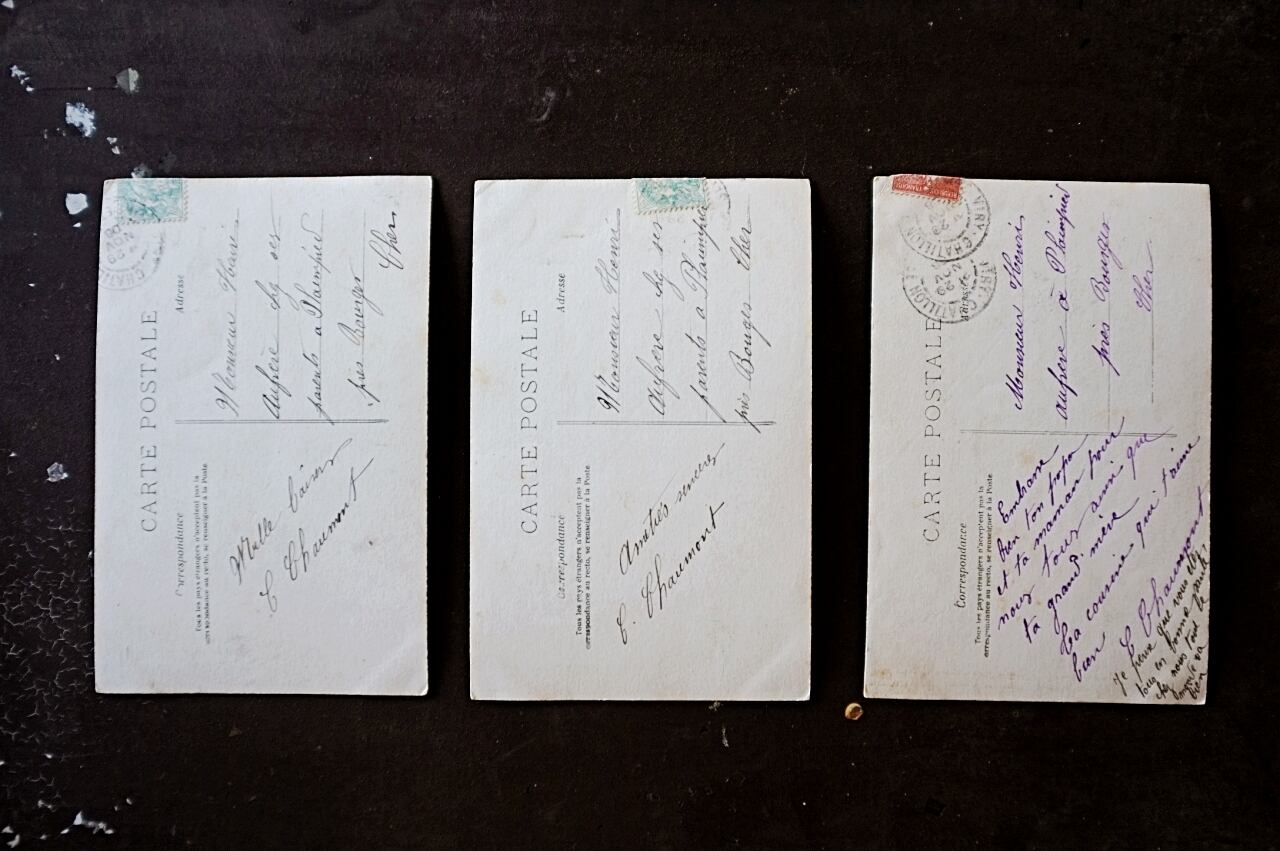 CARTE POSTALE
Correspondance
Adresse
Tous les pays étrangers n'acceptent pas la
correspondance au recto, se renseigner à la Poste
Monsieur Henri
Aufrère chez ses
parents à Plaimpied
près Bourges
Cher
Mille baisers
C Chaumont
CARTE POSTALE
Correspondance
Adresse
Tous les pays étrangers n'acceptent pas la
correspondance au recto, se renseigner à la Poste
Monsieur Henri
Aufrere chez ses
parents a Plaimpied
près Bouges Cher
Amitiés sincères
C. Chaumont
CARTE POSTALE
Correspondance
Adresse
Tous les pays étrangers n'acceptent pas la
correspondance au recto, se renseigner à la Poste
VITRY-CHATILLON
Monsieur Henri
aufrère à Plaimpied
près Bourges
Cher
Embrasse
bien ton papa
et ta maman pour
nous tous ainsi que
ta grand mère
Ta cousine qui t'aime
bien
C Chaumont
Je pense que vous êtes
tous en bonne santé
chez nous tout le
monde va
bien